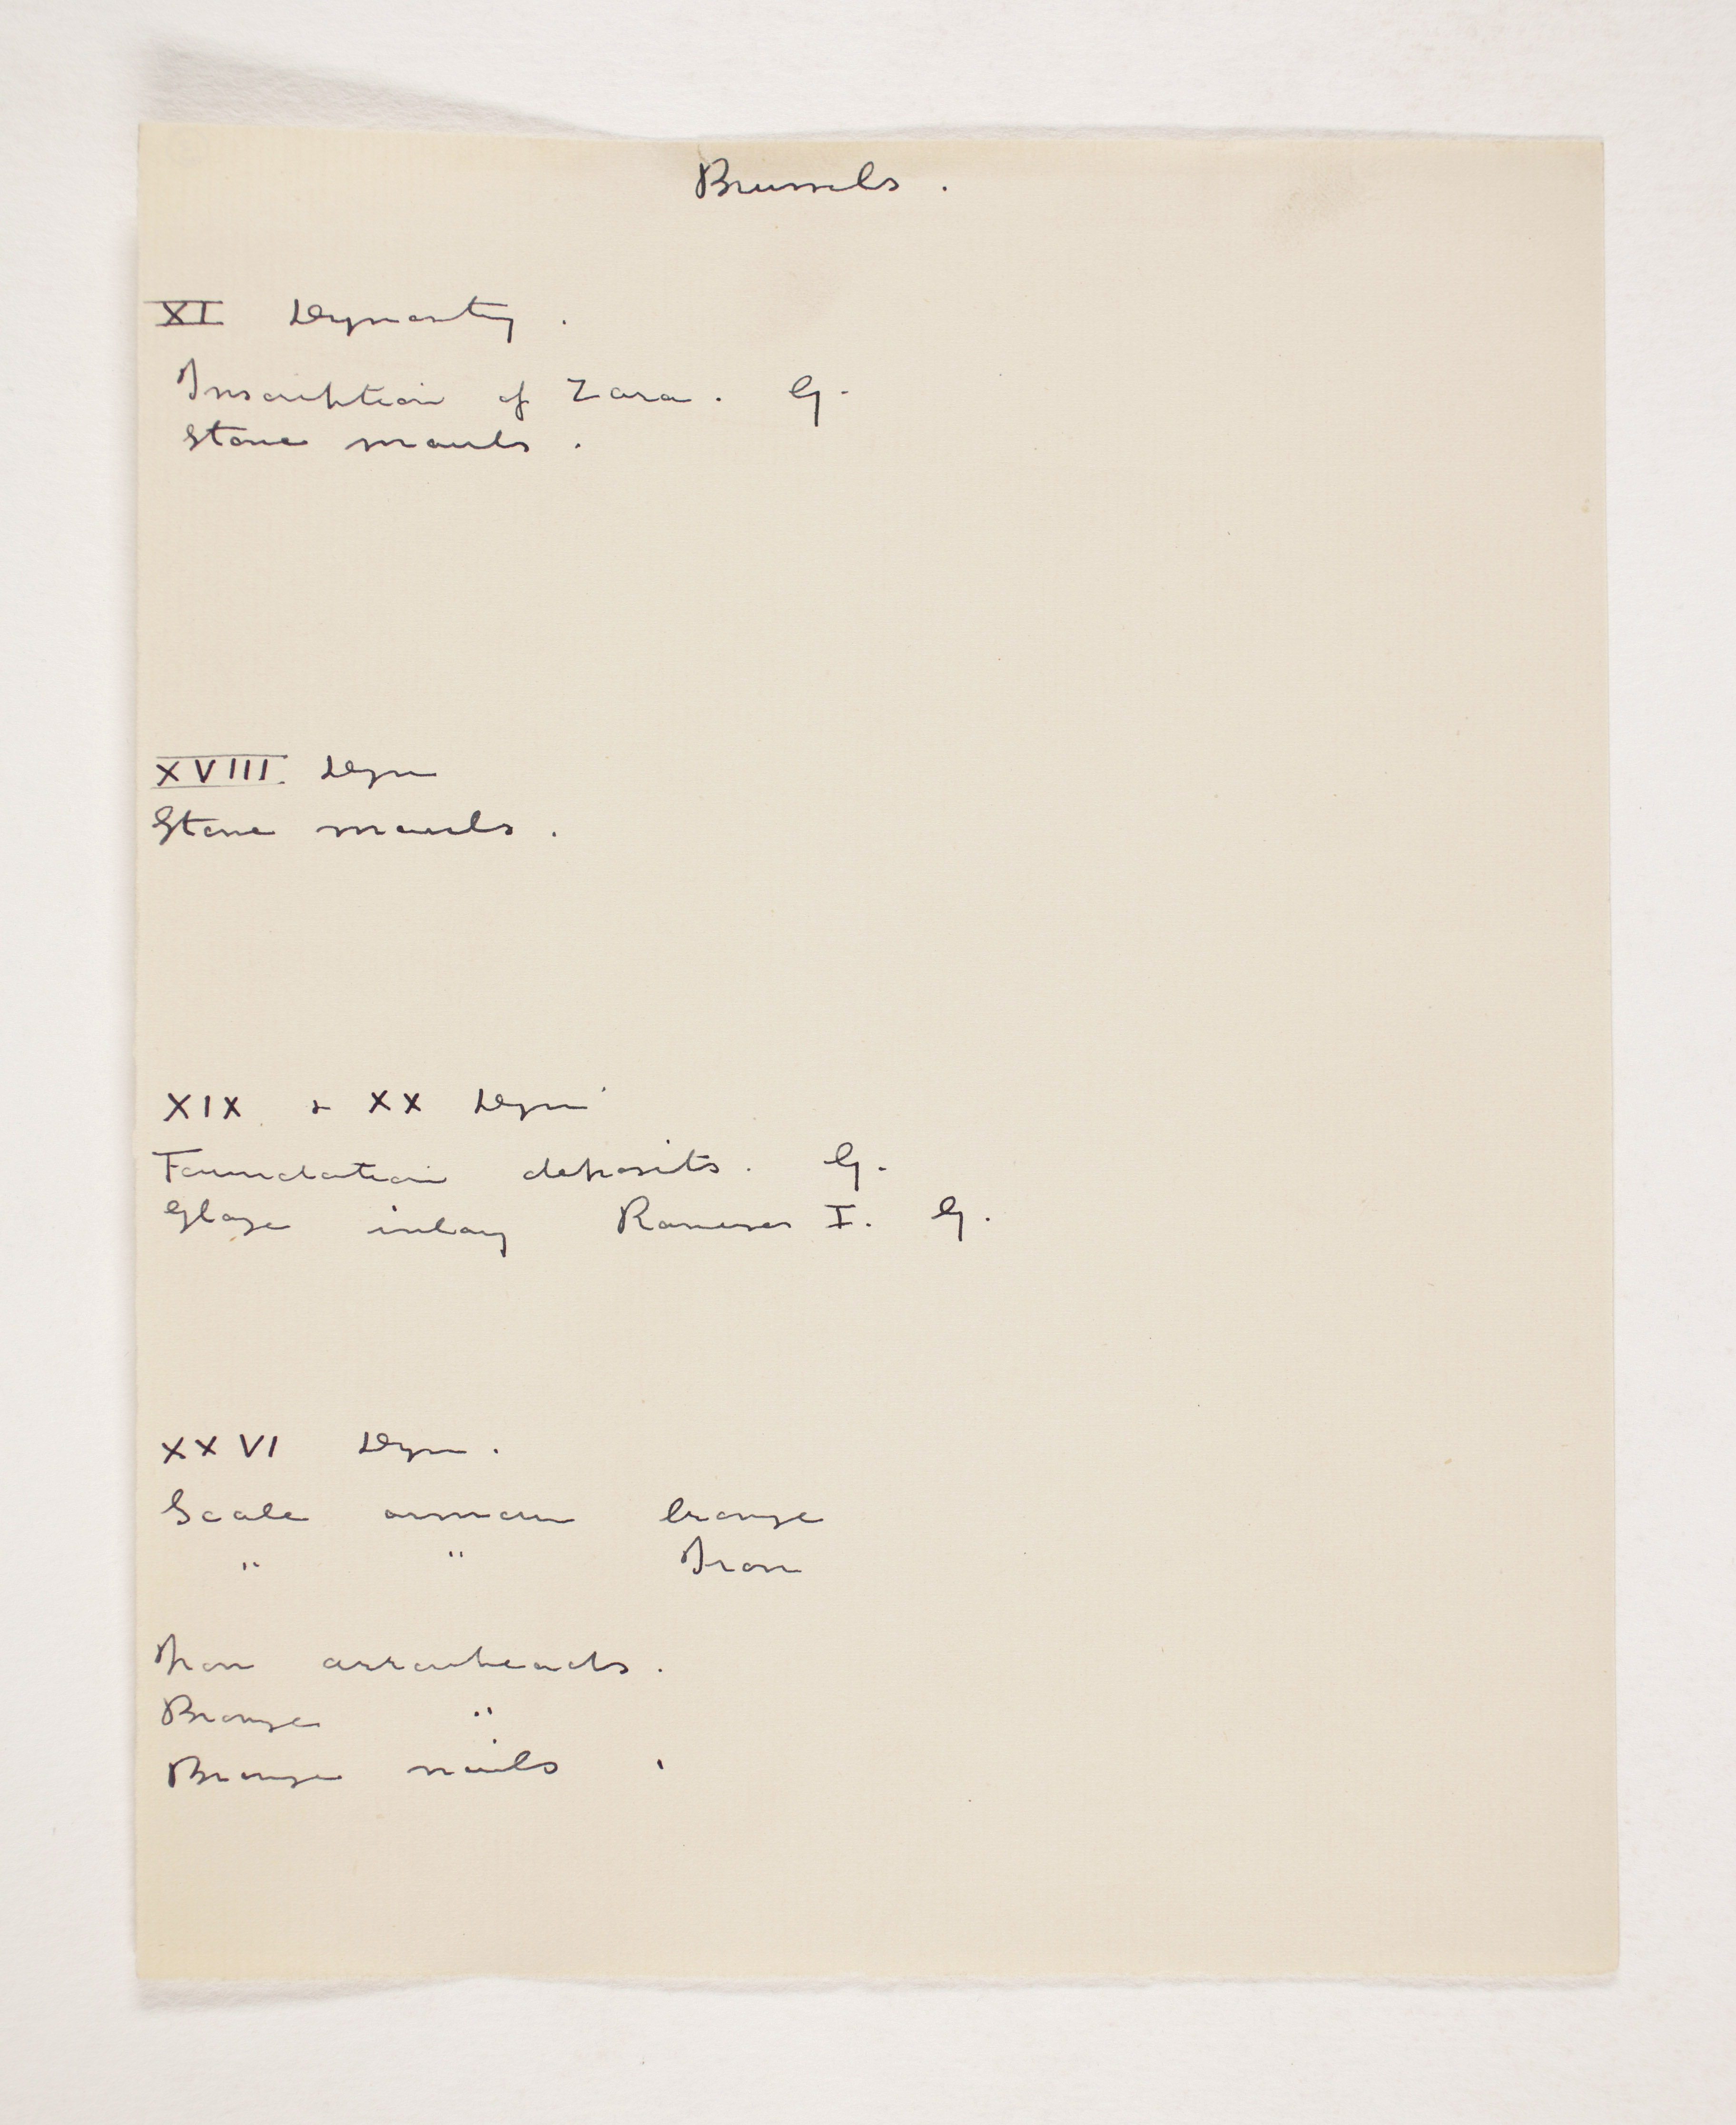 Brussels.
XI Dynasty.
Inscription of Zara. G.
Stone mauls.
XVIII. Dyn
Stone mauls.
XIX & XX Dyn
Foundation deposits. G.
Glaze inlay Rameses I. G.
XXVI Dyn.
Scale armour bronze
" " Iron
Iron arrowheads.
Bronze "
Bronze nails